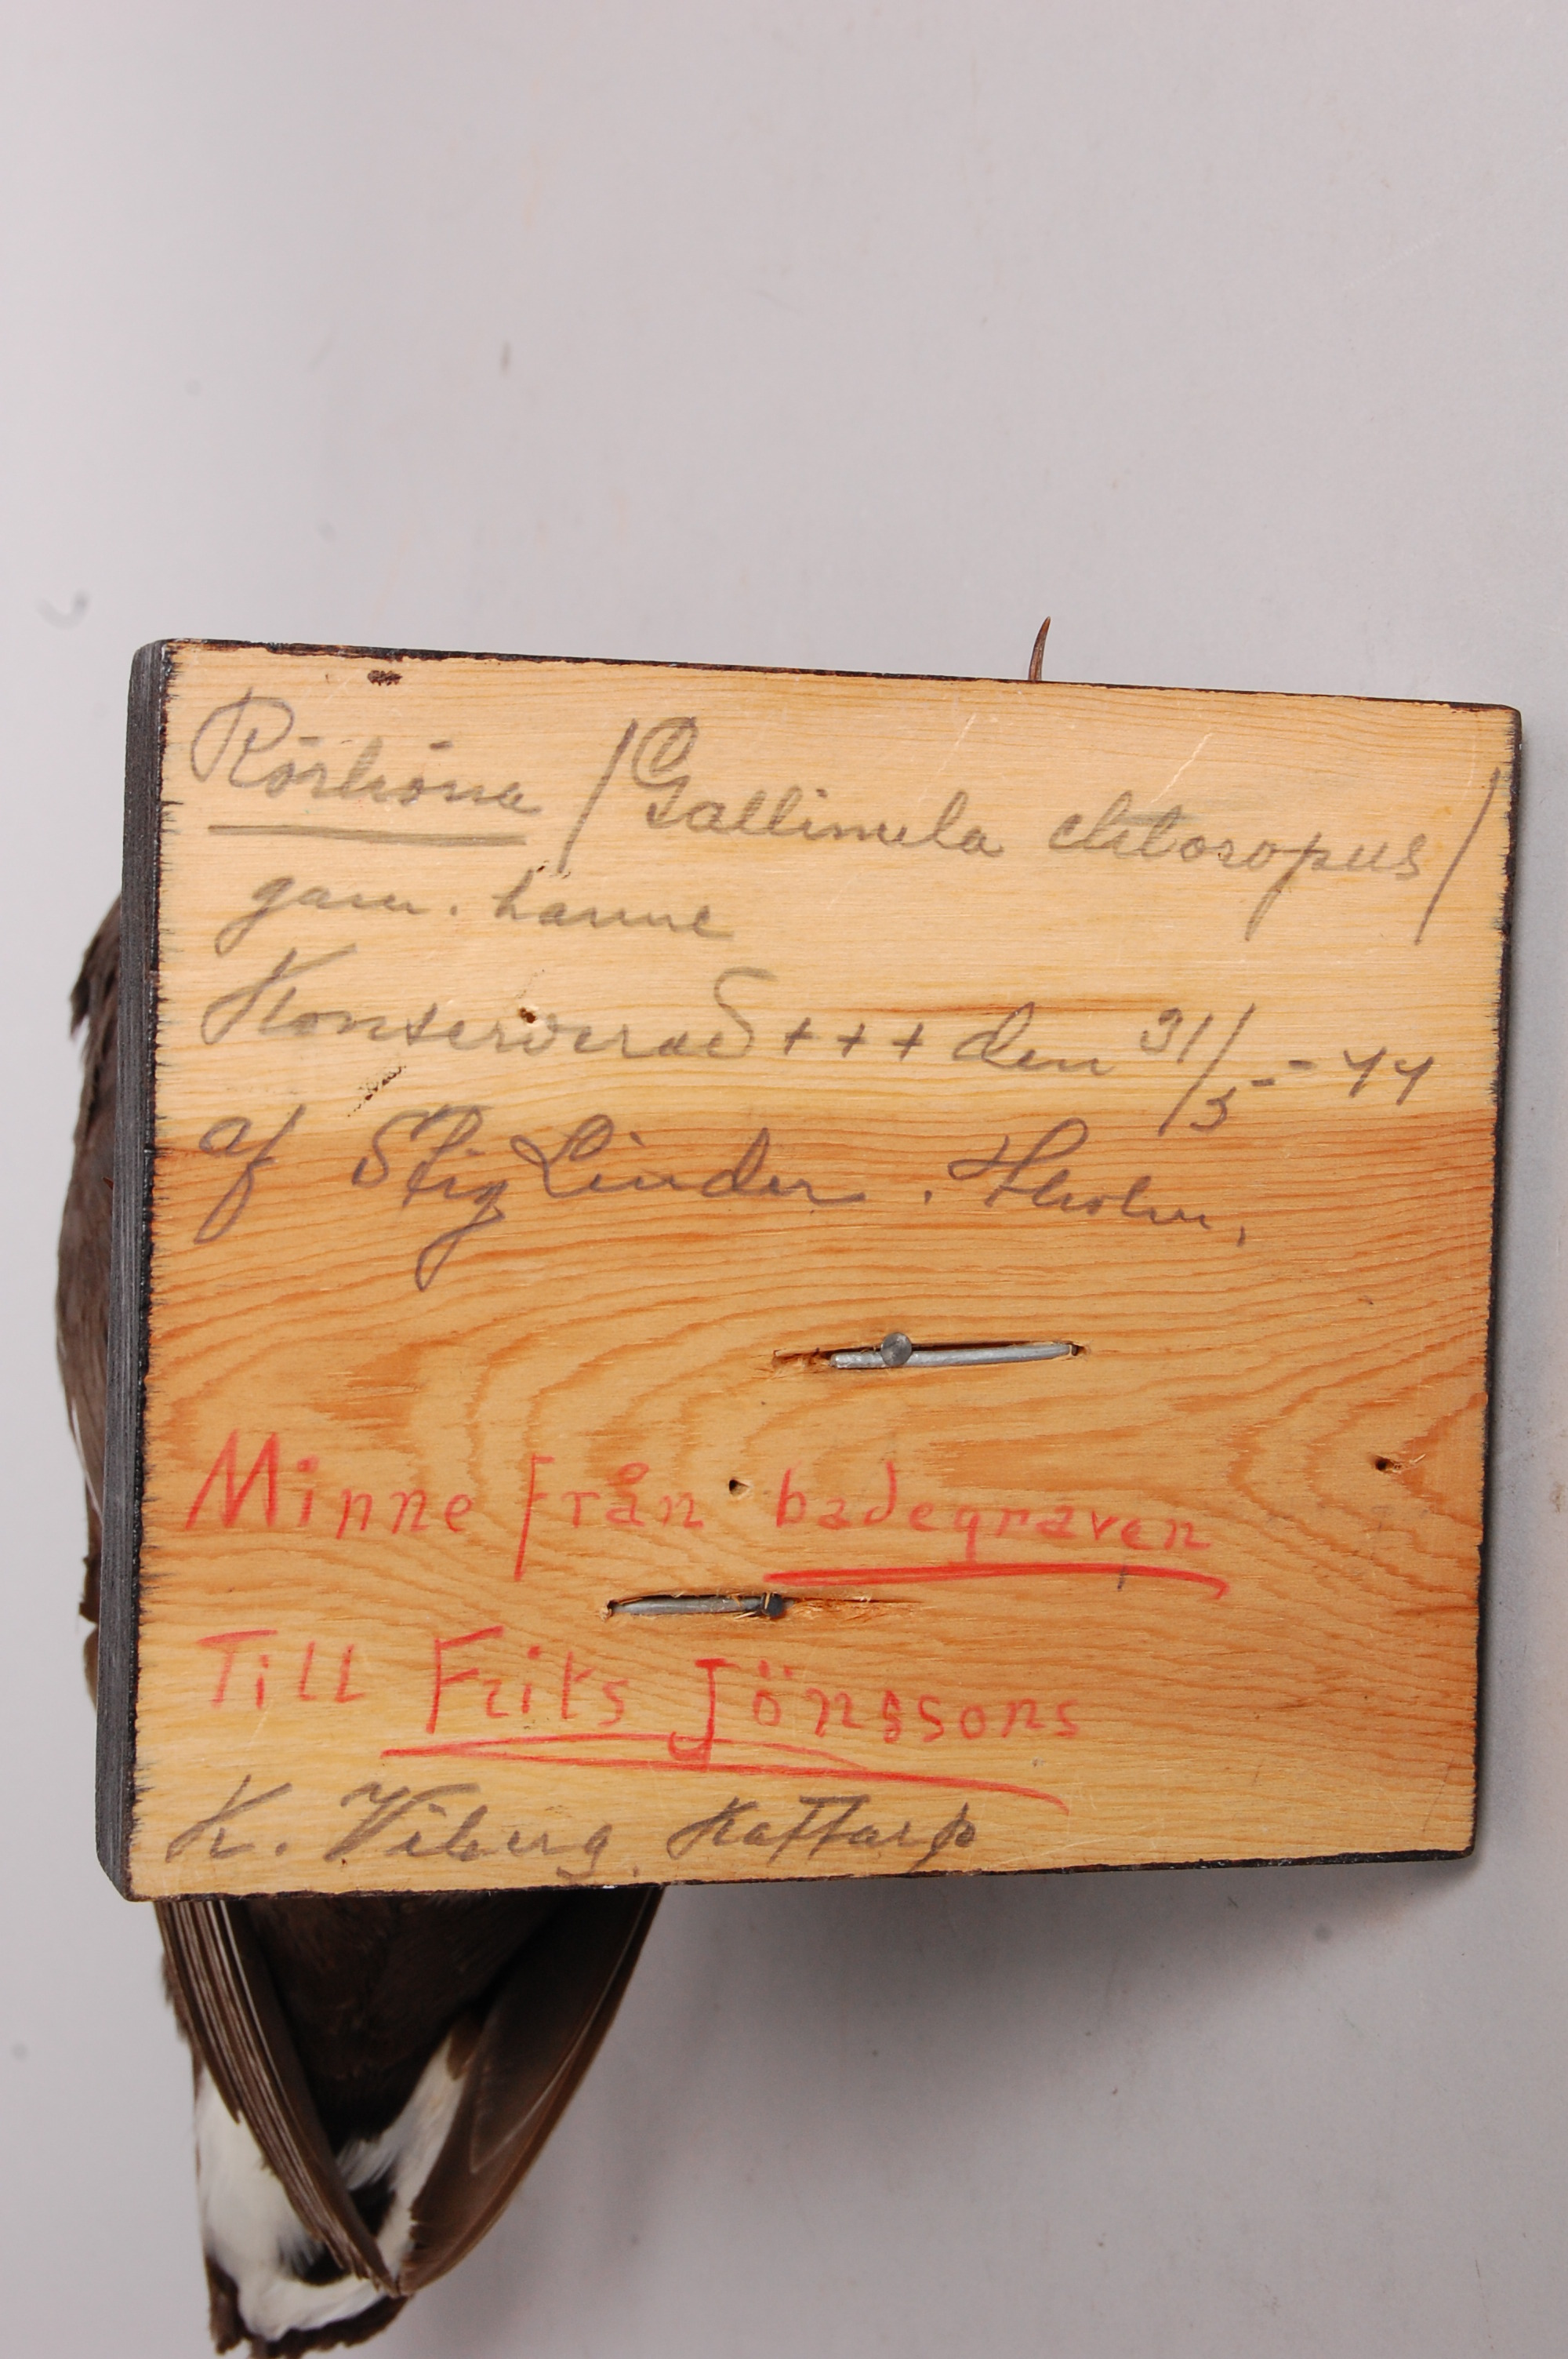 Rörhöna /Gallinula chloropus/
gam. hanne
Konserverad +++ den 31/5 - 44
af Stig Linder. Sholm,
Minne från badegraven
Till Frits Jönssons
K. Viberg. Kattarp